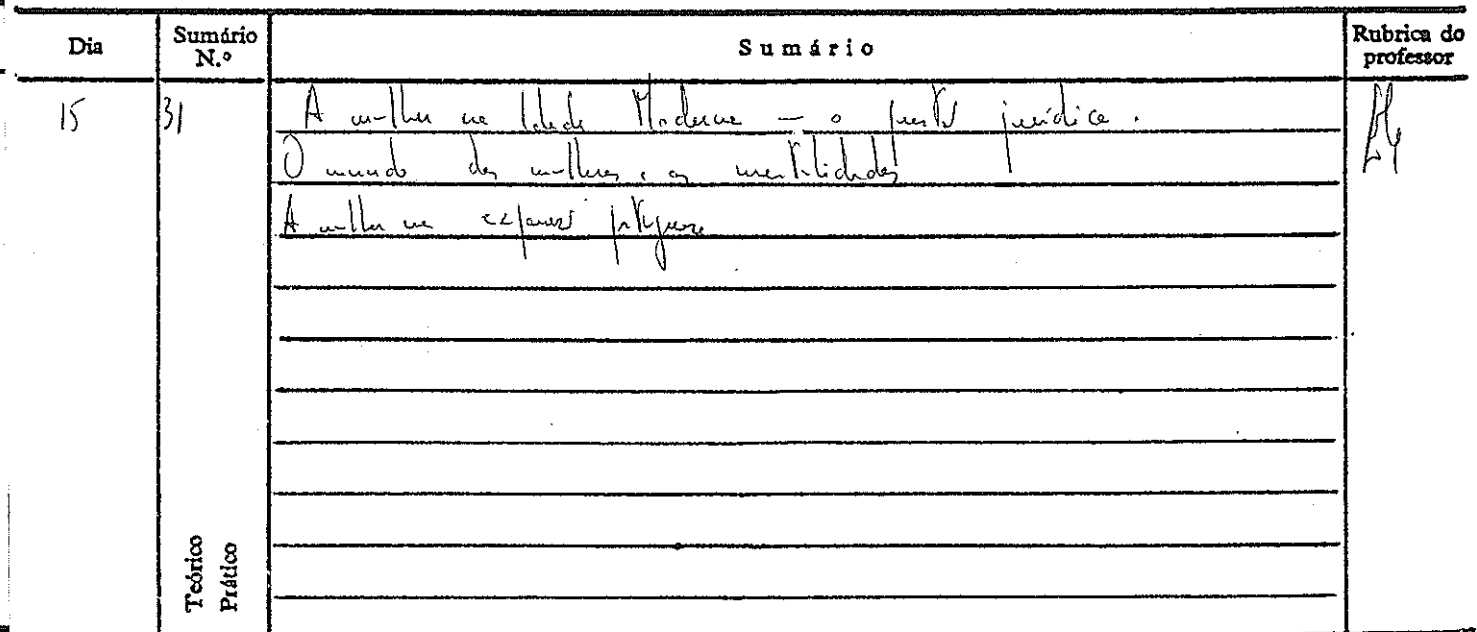 Dia
Sumário N.º
Sumário
Rubrica do professor
15
31
A mulher na Idade Moderna — o jurídica.
O mundo das mulheres e as mentalidades
A mulher na expansão portuguesa
Teórico
Prático